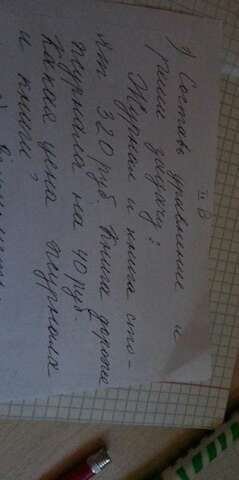 II В
1) Составь уравнение и
реши задачу:
Журнал и книга сто-
ят 320 руб. Книга дороже
журнала на 40 руб.
Какая цена журнала
и книги?